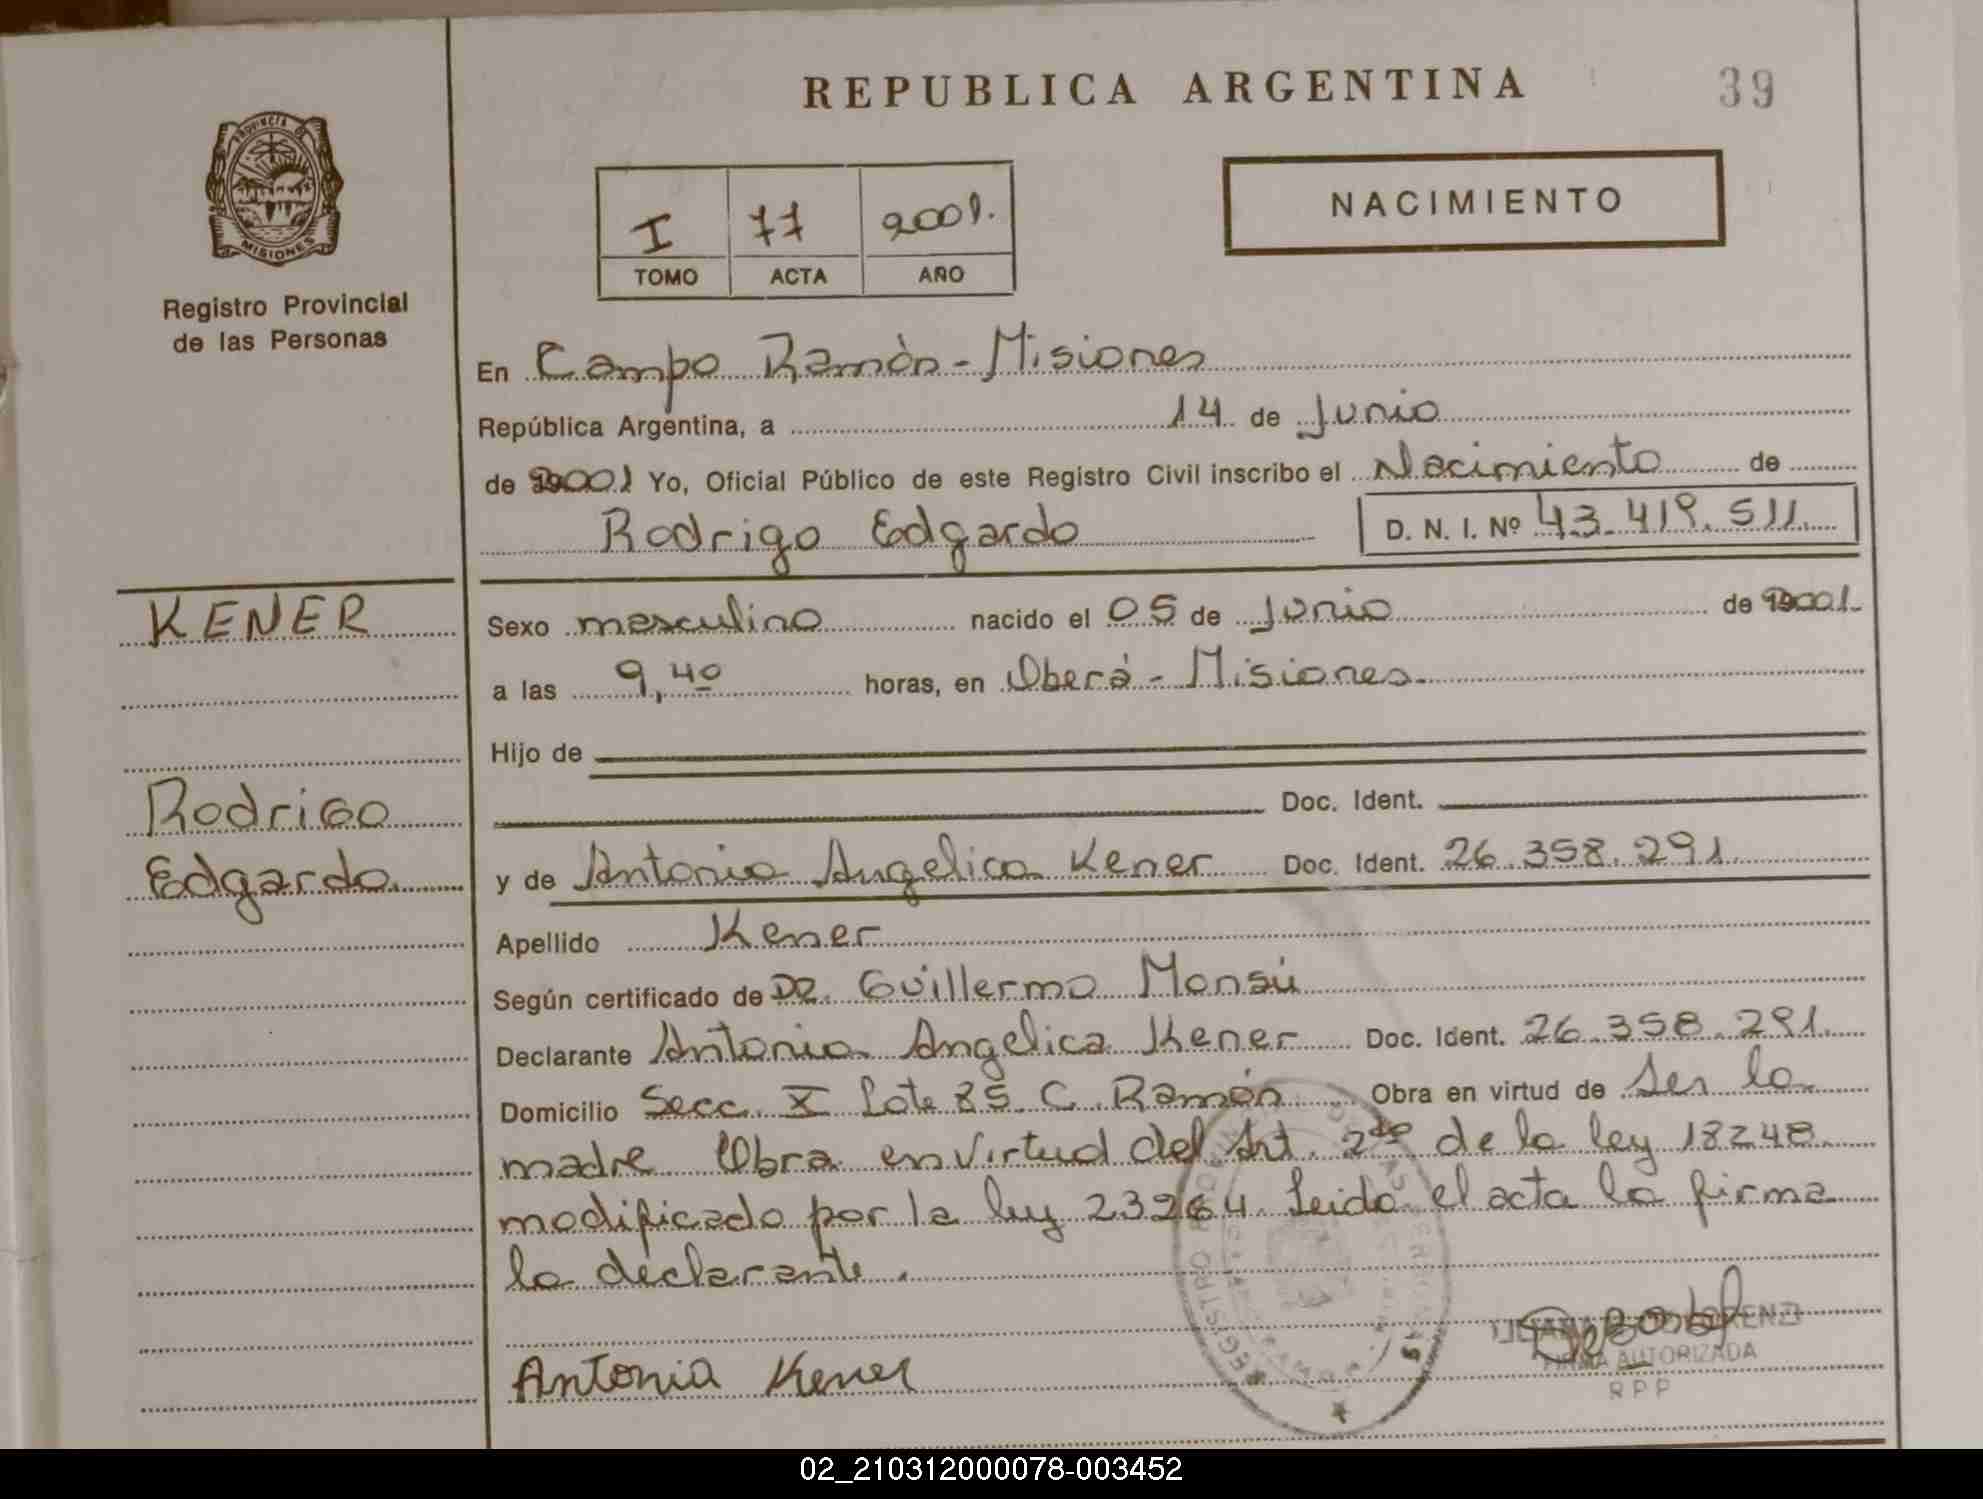 REPUBLICA ARGENTINA
39
PROVINCIA DE
MISIONES
Registro Provincial
de las Personas
I 77 2001.
TOMO ACTA AÑO
NACIMIENTO
En Campo Ramón - Misiones
República Argentina, a 14 de Junio
de 2001 Yo, Oficial Público de este Registro Civil inscribo el Nacimiento de
Rodrigo Edgardo D. N. I. Nº 43.419.511.
KENER
Rodrigo
Edgardo
Sexo masculino nacido el 05 de Junio de 2001.
a las 9,40 horas, en Oberá - Misiones.
Hijo de
Doc. Ident.
y de Antonia Angelica Kener Doc. Ident. 26.358.291.
Apellido Kener
Según certificado de DR. Guillermo Monsú
Declarante Antonia Angelica Kener Doc. Ident. 26.358.291.
Domicilio Secc. X Lote 85 C. Ramón Obra en virtud de Ser la
madre Obra en virtud del Art. 2do de la ley 18248
modificado por la ley 23264. Leida el acta la firma
la declarante.
Antonia Kener
FIRMA AUTORIZADA
RPP
REGISTRO
02_210312000078-003452